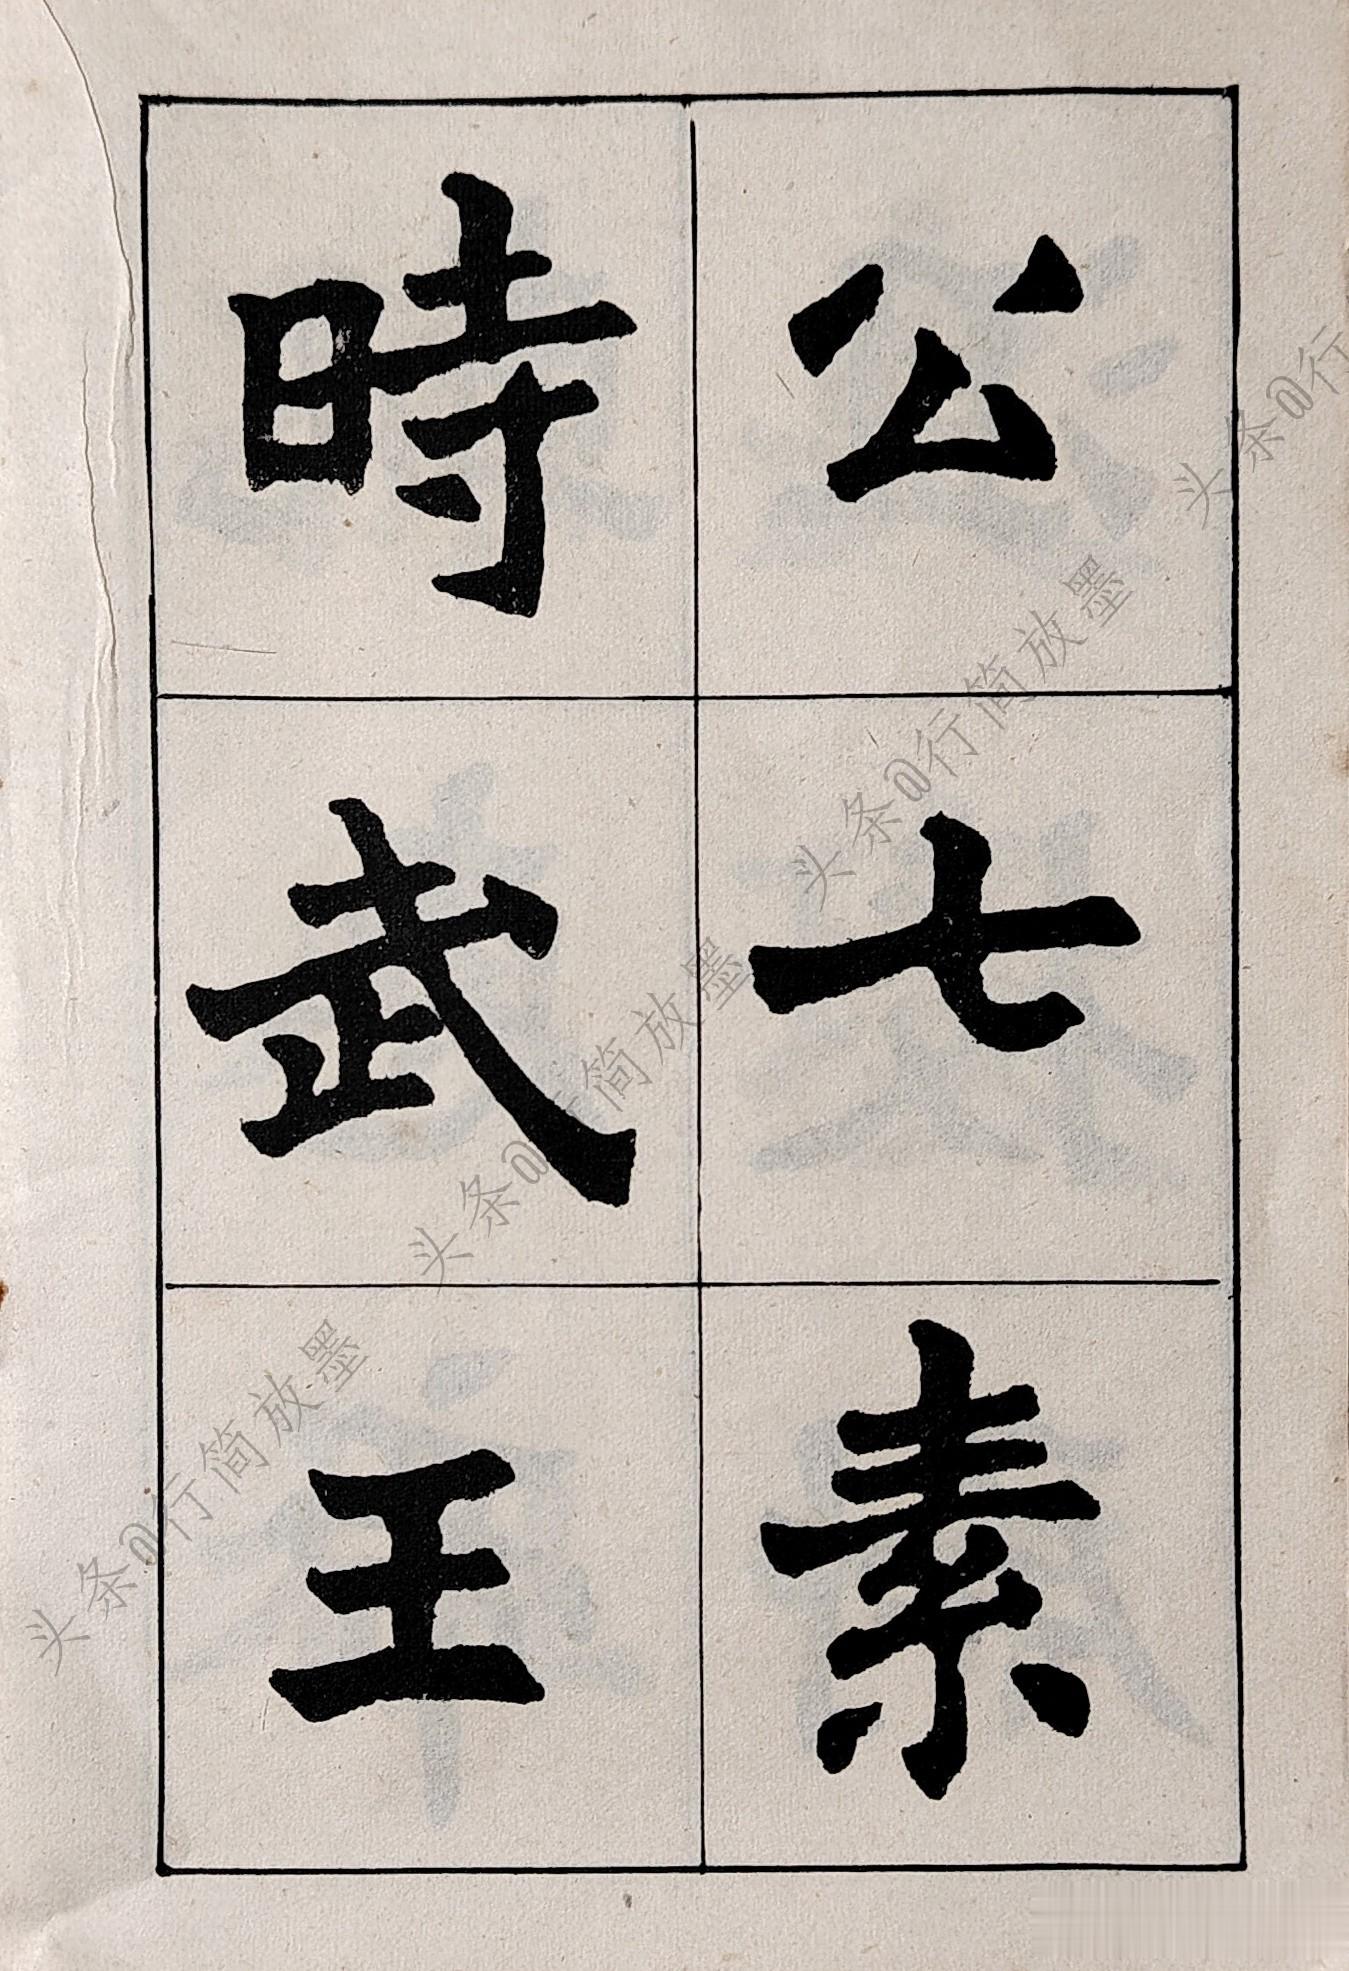 公七素
時武王
头条@行简放墨
头条@行简放墨
头条@行简放墨
头条@行